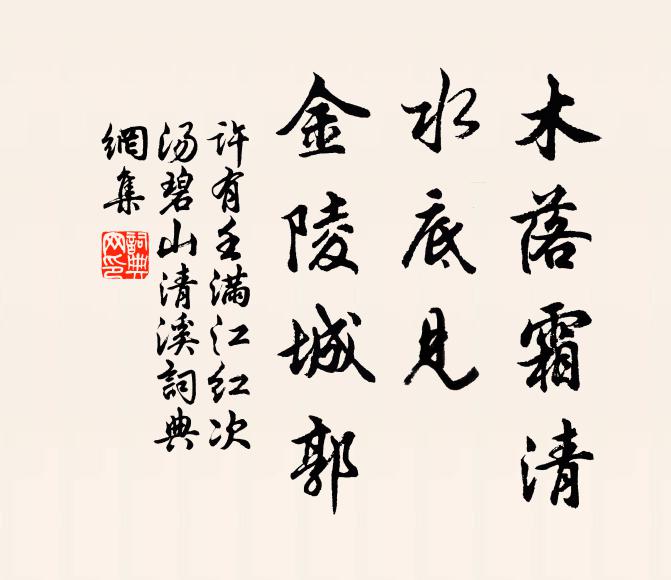 木落霜清
水底見
金陵城郭
许有壬滿江紅次
汤碧山清溪詞典
網集
詞典
网印